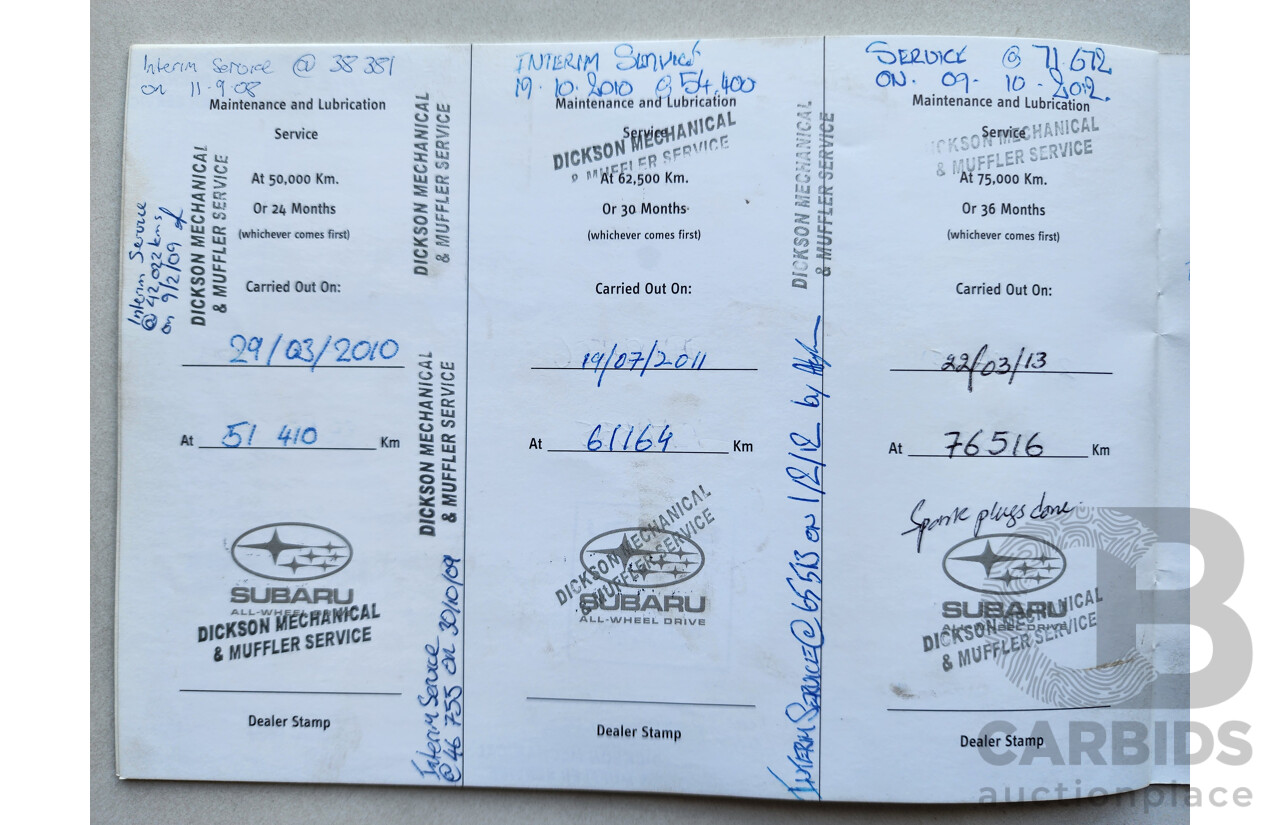 Interim Service @ 38 381
on 11.9.08
Maintenance and Lubrication
Service
DICKSON MECHANICAL
& MUFFLER SERVICE
At 50,000 Km.
Or 24 Months
(whichever comes first)
Interim Service
@ 42,022 kms
on 9/2/09
DICKSON MECHANICAL
& MUFFLER SERVICE
Carried Out On:
29/03/2010
At 51 410 Km
DICKSON MECHANICAL
& MUFFLER SERVICE
Interim Service
@ 46 755 on 30/10/09
SUBARU
ALL-WHEEL DRIVE
DICKSON MECHANICAL
& MUFFLER SERVICE
Dealer Stamp
INTERIM SERVICE
19.10.2010 @ 54,400
Maintenance and Lubrication
Service
DICKSON MECHANICAL
& MUFFLER SERVICE
At 62,500 Km.
Or 30 Months
(whichever comes first)
Carried Out On:
19/07/2011
At 61164 Km
DICKSON MECHANICAL
& MUFFLER SERVICE
SUBARU
ALL-WHEEL DRIVE
Dealer Stamp
DICKSON MECHANICAL
& MUFFLER SERVICE
INTERIM SERVICE @ 65513 ON 1/2/12 by
SERVICE @ 71.672
ON. 09. 10. 2012.
Maintenance and Lubrication
Service
DICKSON MECHANICAL
& MUFFLER SERVICE
At 75,000 Km.
Or 36 Months
(whichever comes first)
Carried Out On:
22/03/13
At 76516 Km
Spark plugs done
SUBARU
ALL-WHEEL DRIVE
DICKSON MECHANICAL
& MUFFLER SERVICE
Dealer Stamp
CARBIDS
auctionplace